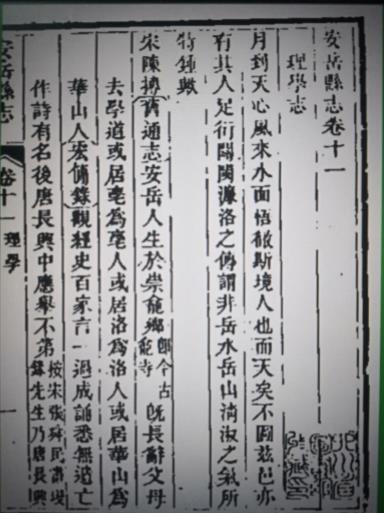 安岳縣志卷十一
理學志
月到天心風來水面悟徹斯境人也而天矣不圖茲邑亦
有其人足衍關閩濂洛之傳謂非岳水岳山淸淑之氣所
特鍾歟
宋陳摶舊通志安岳人生於崇龕鄉卽今古龕寺旣長辭父母
去學道或居亳為亳人或居洛為洛人或居華山為
華山人宏簡錄觀經史百家言一過成誦悉無遺亡
作詩有名後唐長興中應舉不第按宋張舜民畫墁錄先生乃唐長興
安岳縣志
卷十一
理學
一